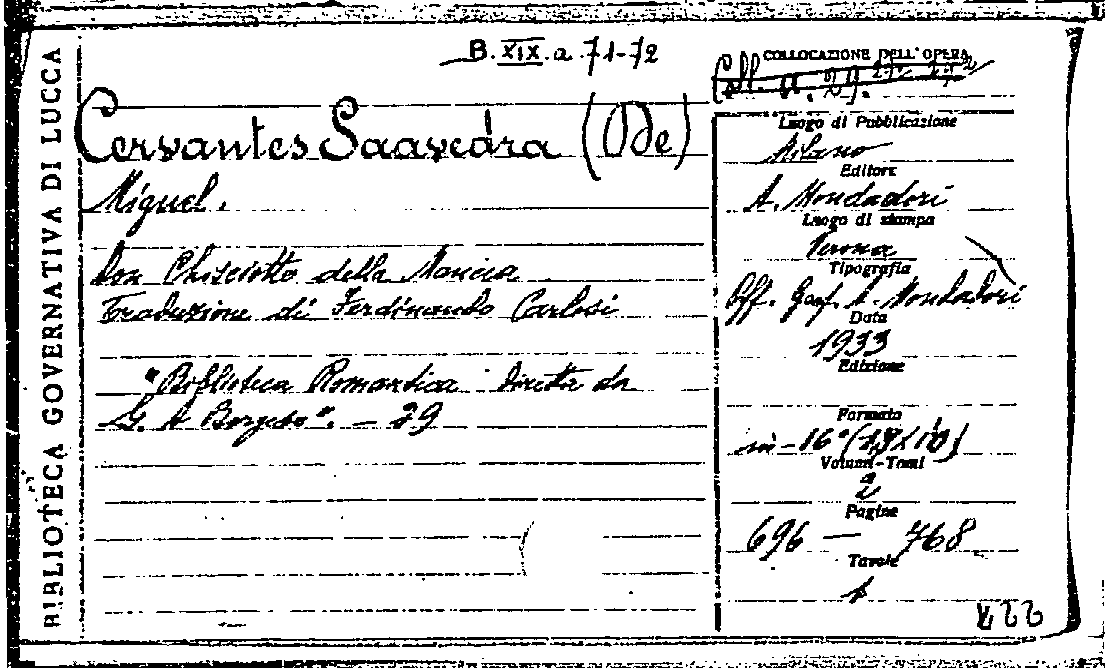 BIBLIOTECA GOVERNATIVA DI LUCCA
B. XIX. a 71-72
COLLOCAZIONE DELL'OPERA
Coll. n. 29.
Cervantes Saavedra (De)
Miguel.
Don Chisciotte della Mancia
Traduzione di Ferdinando Carlesi
"Biblioteca Romantica diretta da
G. A Borgese". - 29
Luogo di Pubblicazione
Milano
Editore
A. Mondadori
Luogo di stampa
Verona
Tipografia
Off. Graf. A. Mondadori
Data
1933
Edizione
Formato
in-16°
Volumi-Tomi
2
Pagine
696 — 768
Tavole